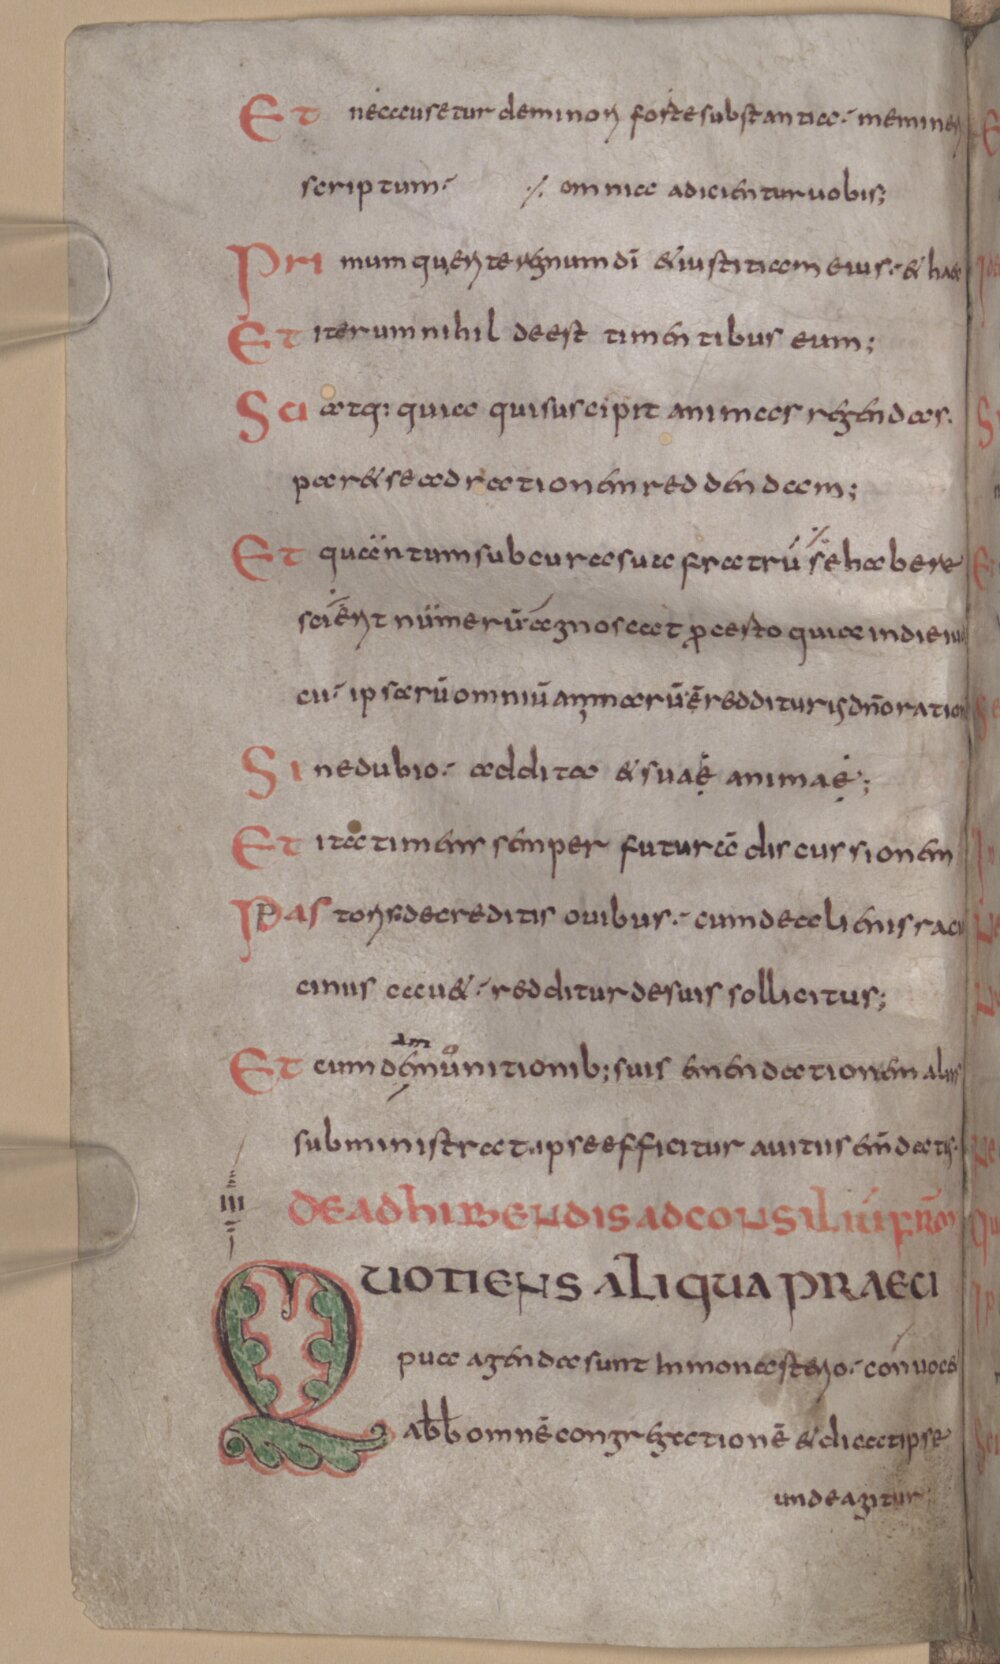 Et necausetur deminori forte substantia · meminerit
scriptum · ⁒ omnia adicientur uobis;
Primum querite regnum dī & iustitiam eius · & haec
Et iterum nihil deest timentibus eum;
Sciatq: quia qui suscipit animas regendas ·
par& se ad rationem reddendam;
Et quantum sub cura sua fratrū se habere
scierit numerū agnoscat pro certo quia in die iudi
cii · ipsarū omniū animarū ē redditurus dn̄o ration
Sine dubio · addita & suaę animaę;
Et ita timens semper futurā discussionem
Pastoris de creditis ouibus · cum de alienis racio
cinus cau& · redditur de suis sollicitus;
Et cum de munitionib; suis emendationem aliis
subministrat ipse efficitur auitiis emendatus ·
III DE ADHIBENDIS AD CONSILIŪ FRĀM
QUOTIENS ALIQUA PRAECI
pua agenda sunt in monasterio · conuocet
abb omnē congregationē & dicat ipse
unde agitur